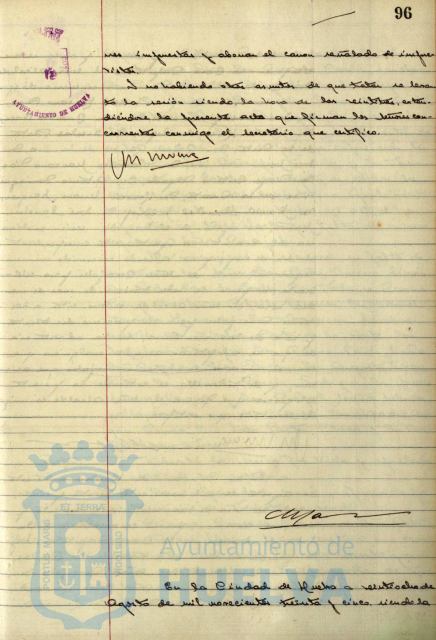 96
AYUNTAMIENTO DE HUELVA
nes impuestas y abonan el canon señalado de impre-
vistos.
Y no habiendo otros asuntos de que tratar se levan-
ta la sesión siendo la hora de las veintitres, exten-
diendose la presente acta que firman los señores con-
currentes conmigo el secretario que certifico.
EL TERRAE
PORTUS MARIS
CUSTODIA
Ayuntamiento de
HUELVA
En la Ciudad de Huelva a veintiocho de
Agosto de mil novecientos treinta y cinco, siendo la